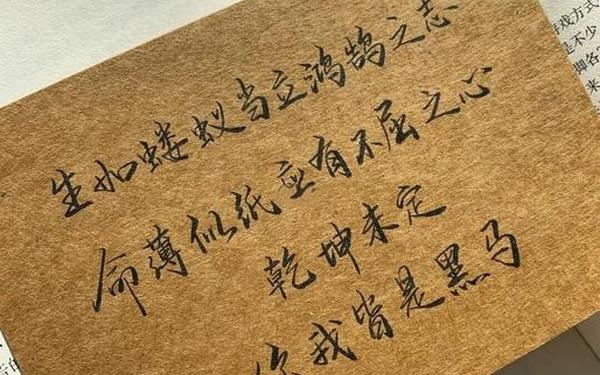 生如蝼蚁当立鸿鹄之志
命薄似纸应有不屈之心
乾坤未定
你我皆是黑马
游戏方式
是不少
脚各
来